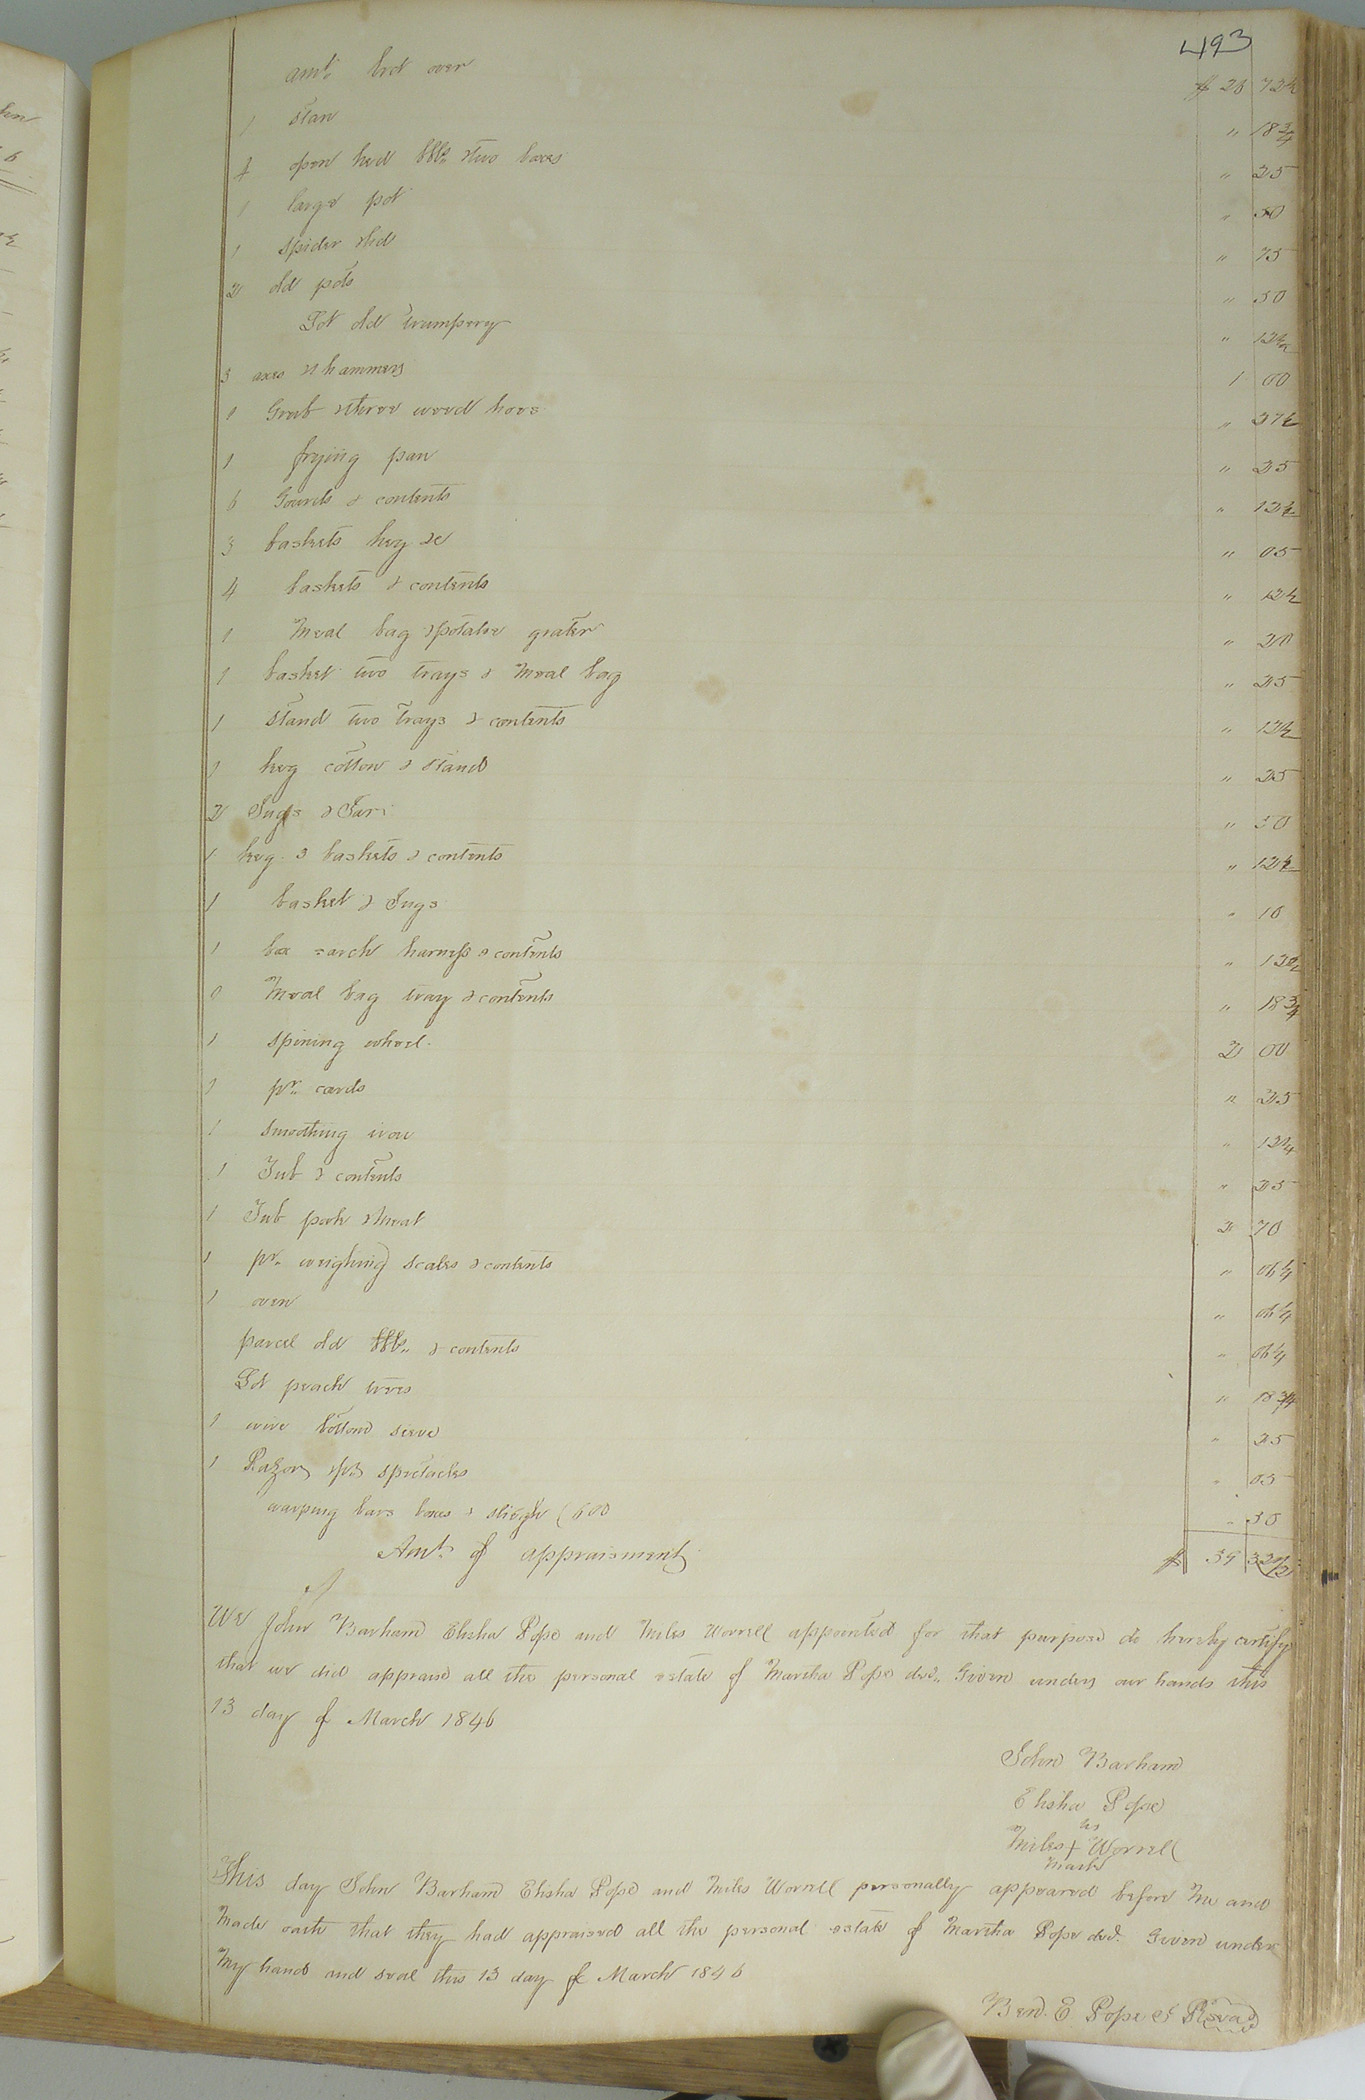 493
amt. brot over $ 28 72½
1 stan " 18¾
1 open hed bbls. & two boxes " 25
1 large pot " 50
1 spider & lid " 75
2 old pots " 50
Lot old trumpery " 12½
3 axes & hammers 1 00
1 Grub & three weed hoes " 37½
1 frying pan " 25
6 Gourds & contents " 12½
3 baskets keg &c " 05
4 baskets & contents " 12½
1 Meal bag & potatoe grater " 20
1 basket two trays & Meal bag " 25
1 stand two trays & contents " 12½
1 keg cotton & stand " 25
2 Jugs & Jar " 50
1 keg 3 baskets & contents " 12½
1 basket & Jugs " 10
1 box sarch harness & contents " 12½
Meal bag tray & contents " 18¾
1 spining wheel 2 00
1 pr. cards " 25
1 smothing iron " 12½
1 Tub & contents " 25
1 Tub pork & meat 2 70
1 pr. weighing scales & contents " 06¼
1 oven " 06¼
parcel old bbls. & contents " 06¼
Lot peach trees " 18¾
1 wire bottom sieve " 25
1 Razor & pr spectacles " 05
warping bars boxes & sleigh " 50
Amt. of appraisment $ 39 32½
We John Barham Elisha Pope and Miles Worrell appointed for that purpose do hereby certify
that we did appraise all the personal estate of Martha Pope decd. Given under our hands this
13 day of March 1846
John Barham
Elisha Pope
his
Miles + Worrell
mark
This day John Barham Elisha Pope and Miles Worrell personally appeared before Me and
Made oath that they had appraised all the personal estate of Martha Pope decd. Given under
My hand and seal this 13 day of March 1846
Ben. E Pope